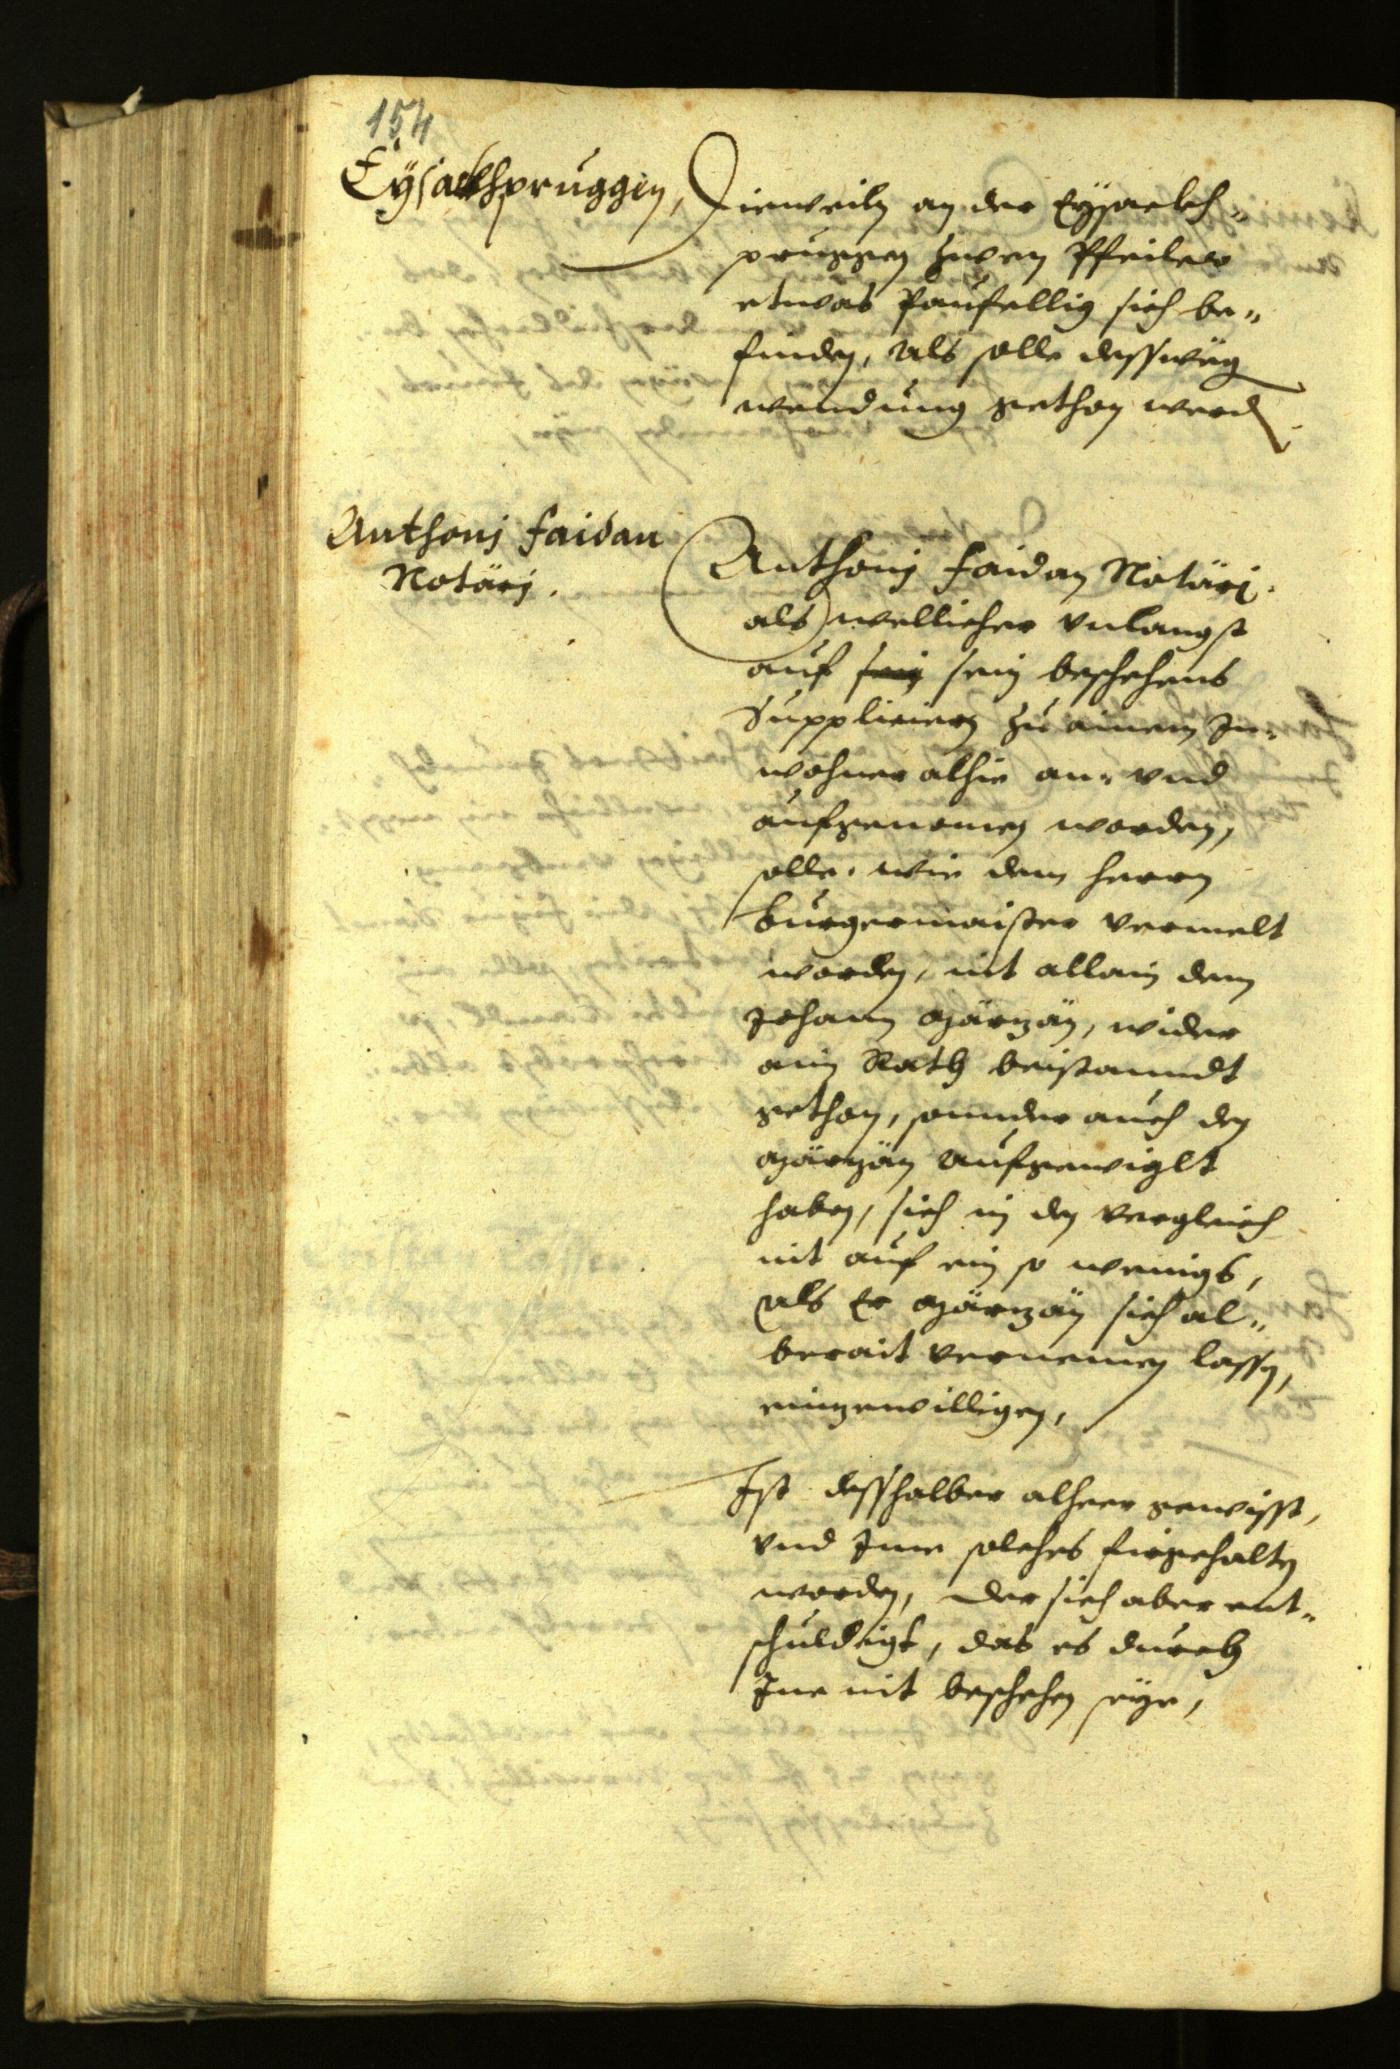 154
Eÿsackhpruggen,
Dieweiln an der Eÿsackh„
pruggen zwen Pfeiler
etwas Paufellig sich be„
finden, Als solle desswëg
wendung gethon werd.
Anthonj faidan
Notärj.
Anthonj faidan Notärj.
als wellicher vnlangst
auf sein sein beschehens
Supplicieren zu ainem In„
wohner alhie an- vnd
aufgenomen worden,
solle, wie dem herrn
Burgermaister vermelt
worden, nit allain dem
Johann Märzän, wider
ain Rath beistanndt
gethon, sonnder auch den
Märzän aufgewiglt
haben, sich in den vergleich
nit auf ein so wenigs,
als Er Märzän sich al„
berait vernemen lassen,
einzewilligen,
Ist desshalber alheer gewisst,
vnd Ime solches firgehalten
worden, der sich aber ent„
schuldigt, das es durch
Ine nit beschehen seÿe,